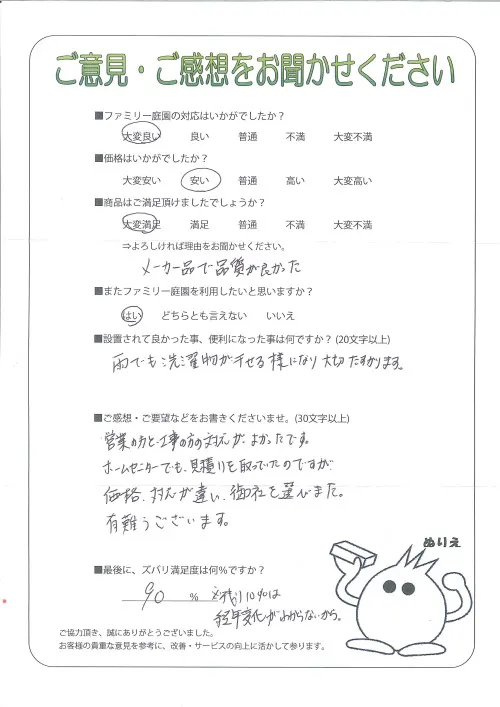 ご意見・ご感想をお聞かせください
■ファミリー庭園の対応はいかがでしたか？
大変良い 良い 普通 不満 大変不満
■価格はいかがでしたか？
大変安い 安い 普通 高い 大変高い
■商品はご満足頂けましたでしょうか？
大変満足 満足 普通 不満 大変不満
⇒よろしければ理由をお聞かせください。
メーカー品で品質が良かった
■またファミリー庭園を利用したいと思いますか？
はい どちらとも言えない いいえ
■設置されて良かった事、便利になった事は何ですか？(20文字以上)
雨でも洗濯物が干せる様になり大切たすかります。
■ご感想・ご要望などをお書きくださいませ。(30文字以上)
営業の方と、工事の方の対応がよかったです。
ホームセンターでも、見積りを取っていたのですが
価格、対応が違い、御社を選びました。
有難うございます。
ぬりえ
■最後に、ズバリ満足度は何％ですか？
90 ％ ※残り10％は
経年変化がわからないから。
ご協力頂き、誠にありがとうございました。
お客様の貴重な意見を参考に、改善・サービスの向上に活かして参ります。